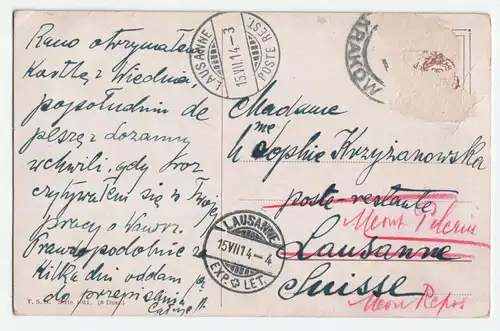 Rano otrzymałem
kartkę z Wiednia,
popołudniu de
peszę z doznany
w chwili, gdy
czytywałem się w Twojej
pracy o
Prawdopodobnie z
kilka dni oddam ją
do przepisania
LAUSANNE
15.VII.14-3
POSTE REST.
KRAKÓW
Madame
Sophie Krzyżanowska
poste restante
Mont Pelerin
Lausanne
Suisse
Mon Repos
LAUSANNE
15.VII.14-4
EXP. LET.
T. S. N.